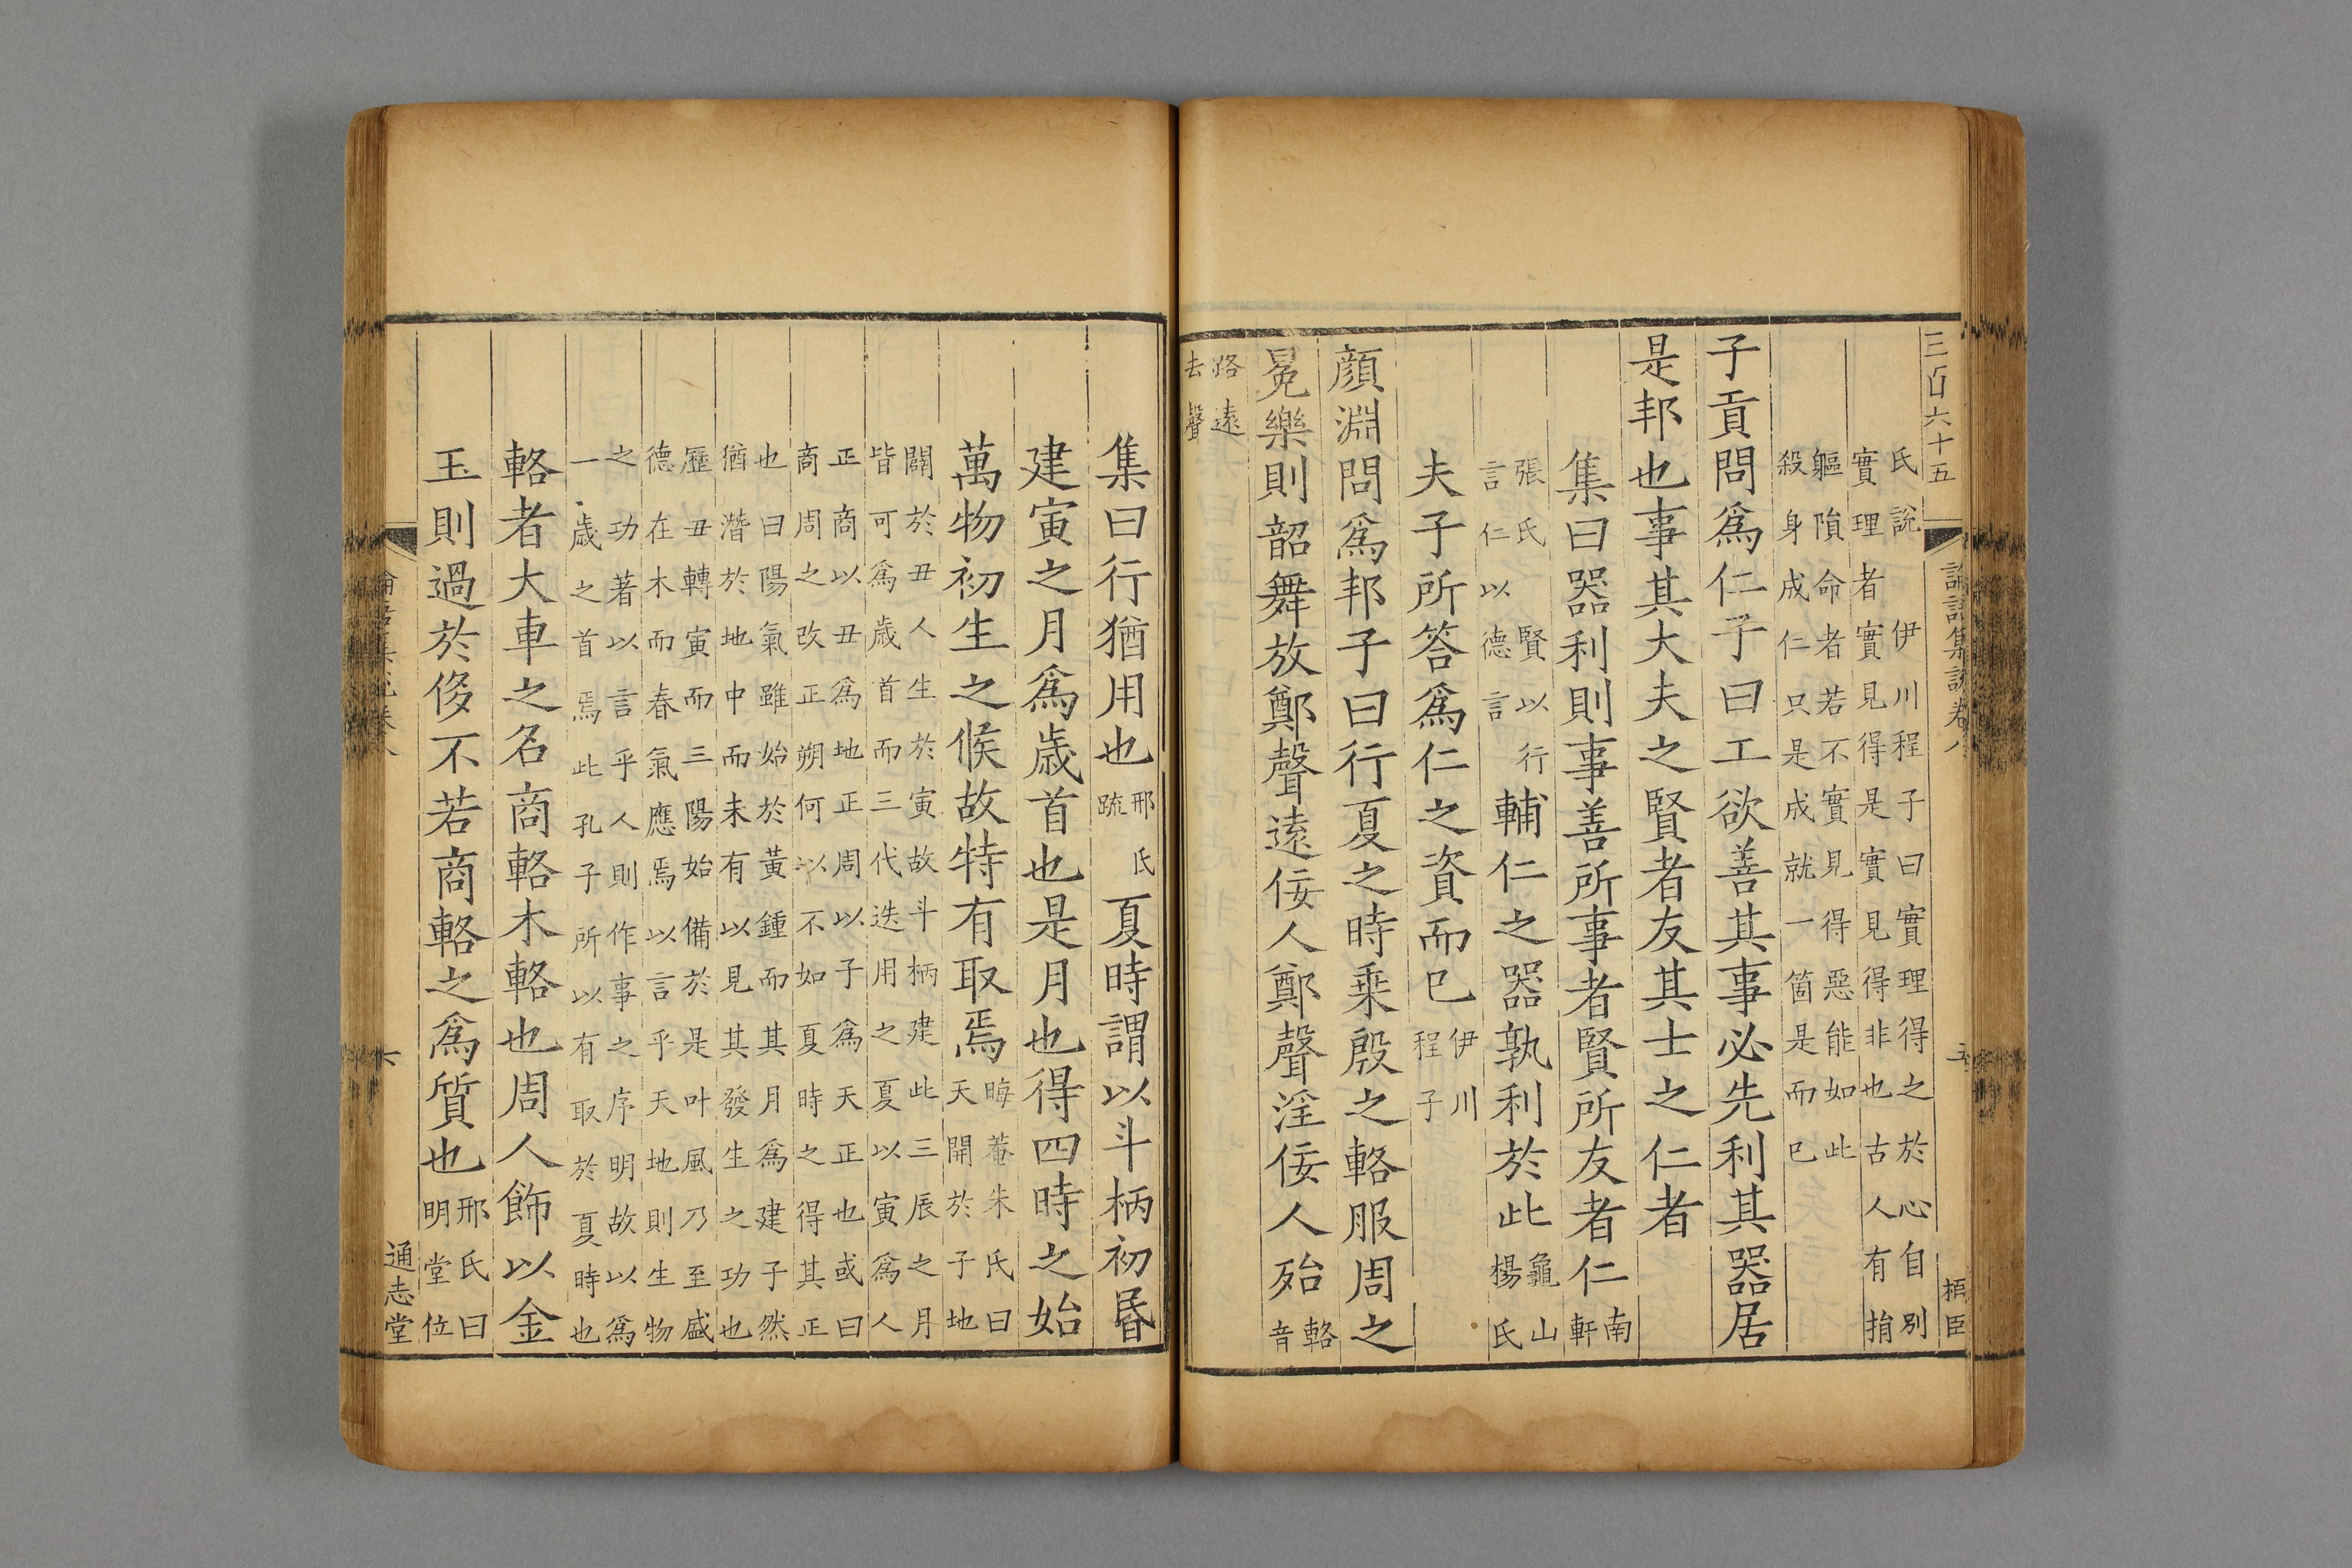 三百六十五
論語集說卷八
五
桓臣
氏說 伊川程子曰實理得之於心自別
實理者實見得是實見得非也古人有捐
軀隕命者若不實見得惡能如此
殺身成仁只是成就一箇是而已
子貢問爲仁子曰工欲善其事必先利其器居
是邦也事其大夫之賢者友其士之仁者
集曰器利則事善所事者賢所友者仁南
軒
張氏 賢以行
言仁以德言
輔仁之器孰利於此龜山
楊氏
夫子所答爲仁之資而已伊川
程子
顔淵問爲邦子曰行夏之時乘殷之輅服周之
冕樂則韶舞放鄭聲遠佞人鄭聲淫佞人殆輅
音
路遠
去聲
集曰行猶用也邢氏
疏
夏時謂以斗柄初昬
建寅之月爲歲首也是月也得四時之始
萬物初生之候故特有取焉晦菴朱氏曰
天開於子地
闢於丑人生於寅故斗柄建此三辰之月
皆可爲歲首而三代迭用之夏以寅爲人
正商以丑爲地正周以子爲天正也或曰
商周之改正朔何以不如夏時之得其正
也曰陽氣雖始於黃鍾而其月爲建子然
猶潛於地中而未有以見其發生之功也
歷丑轉寅而三陽始備於是叶風乃至盛
德在木而春氣應焉以言乎天地則生物
之功著以言乎人則作事之序明故以爲
一歲之首焉此孔子所以有取於夏時也
輅者大車之名商輅木輅也周人飾以金
玉則過於侈不若商輅之爲質也邢氏曰
明堂位
論語集說卷八
六
通志堂